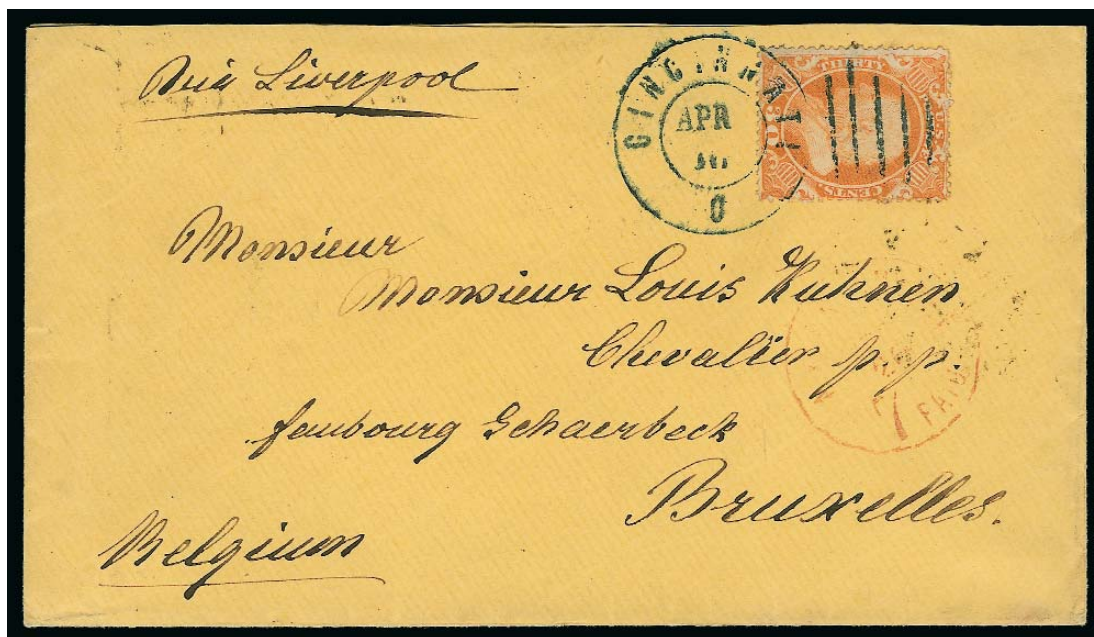 Via Liverpool
CINCINNATI
APR
16
O
THIRTY
30
U.S.
CENTS.
Monsieur
Monsieur Louis Kuhnen
Chevalier p. p.
faubourg Schaerbeck
Bruxelles.
Belgium
PAID